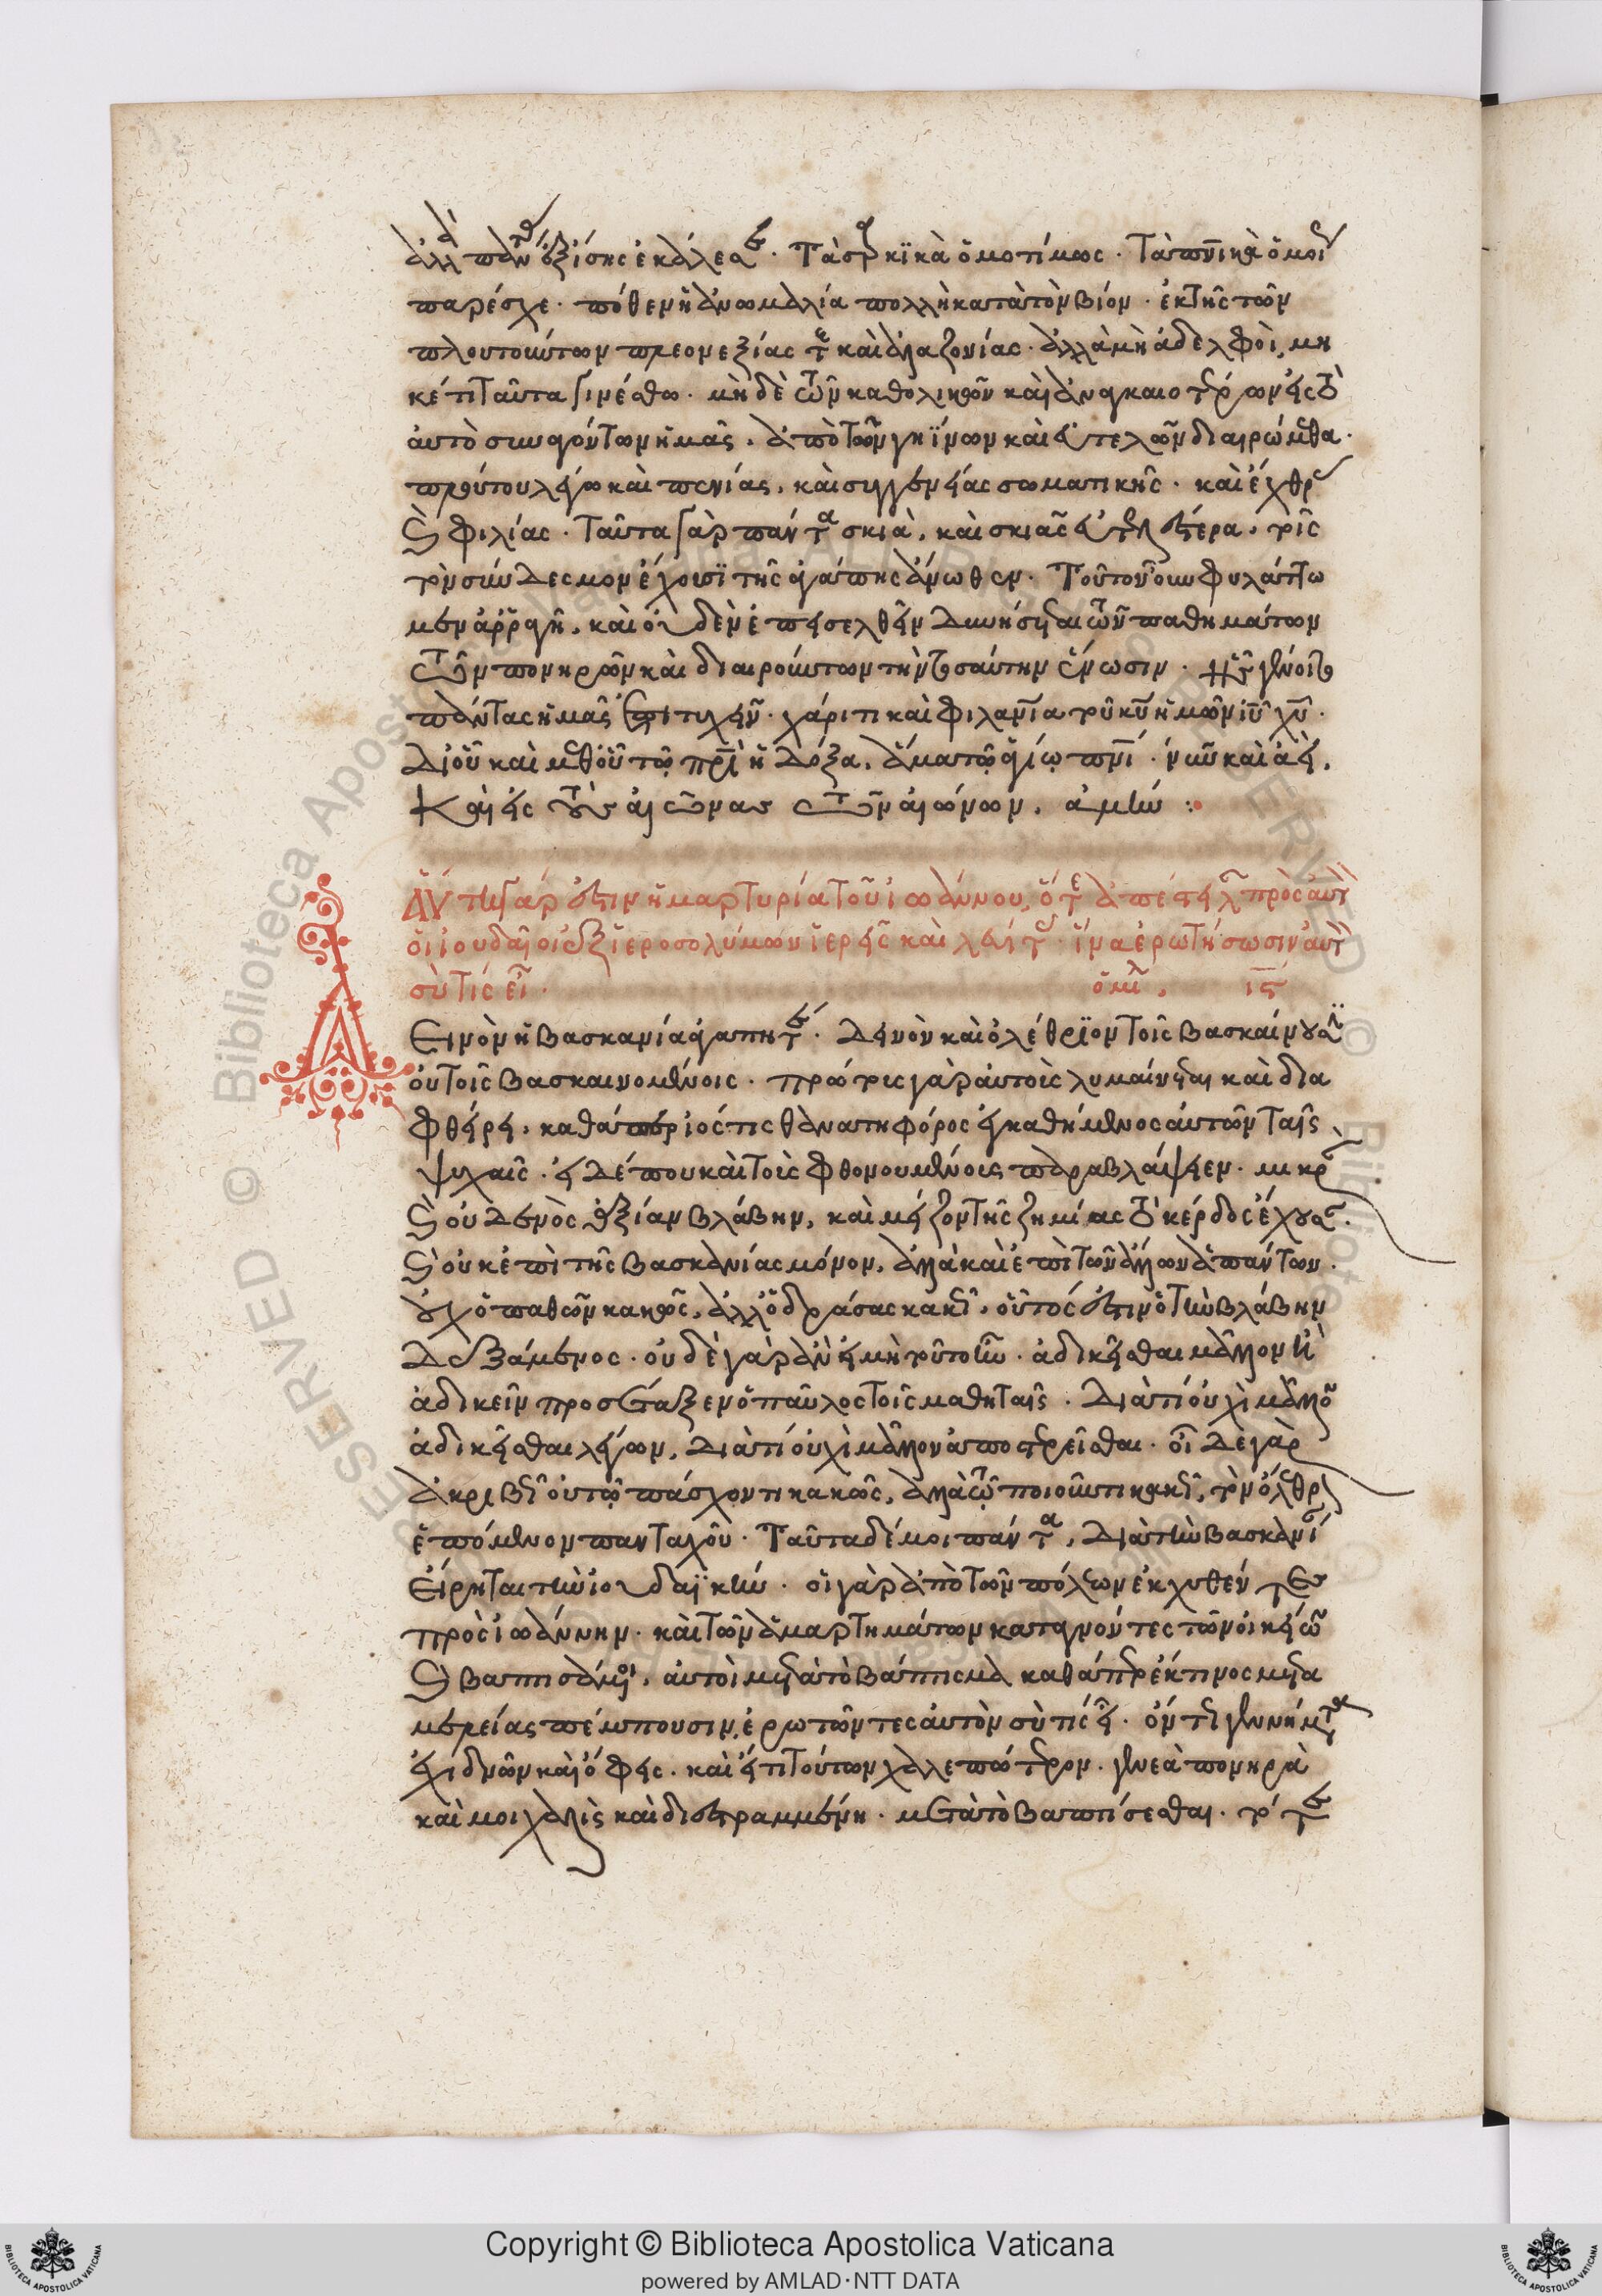 ἀλλὰ πάντας ἐξίσης ἐκάλεσε. Τὰ σαρκικὰ ὁμοτίμως. Τὰ πνευματικὰ ὁμοίως
παρέσχε. πόθεν ἡ ἀνωμαλία πολλὴ κατὰ τὸν βίον. ἐκ τῆς τῶν
πλουτούντων πλεονεξίας τε καὶ ἀλαζονίας. ἀλλὰ μὴ ἀδελφοὶ, μη
κέτι ταῦτα γινέσθω. μὴ δὲ τῶν καθολικῶν καὶ ἀναγκαιοτέρων εἰς τὸ
αὐτὸ συναγόντων ἡμᾶς, ἀπὸ τῶν γηΐνων καὶ εὐτελῶν διαιρώμεθα.
πλούτου λέγω καὶ πενίας, καὶ συγγενείας σωματικῆς. καὶ ἔχθρας
καὶ φιλίας. Ταῦτα γὰρ πάντα σκιὰ, καὶ σκιᾶς εὐτελέστερα, τοῖς
τὸν σύνδεσμον ἔχουσι τῆς ἀγάπης ἄνωθεν. Τοῦτον οὖν φυλάττω
μεν ἀρραγῆ, καὶ οὐδὲν ἐπεισελθεῖν δυνήσεται τῶν παθημάτων
τῶν πονηρῶν καὶ διαιρούντων τὴν τοσαύτην ἕνωσιν. ἧς γένοιτο
πάντας ἡμᾶς ἐπιτυχεῖν. χάριτι καὶ φιλανίᾳ τοῦ κυ ἡμῶν ιυ χυ.
Δι' οὗ καὶ μεθ' οὗ τῷ πρι ἡ δόξα, ἅμα τῷ ἁγίῳ πνι. νῦν καὶ ἀεὶ,
Καὶ εἰς τοὺς αἰῶνας τῶν αἰώνων, ἀμήν :
Αὕτη γάρ ἐστιν ἡ μαρτυρία τοῦ ἰωάννου, ὅτε ἀπέστειλαν πρὸς αὐτὸν
οἱ ἰουδαῖοι ἐξ ἱεροσολύμων ἱερεῖς καὶ λευίτας. ἵνα ἐρωτήσωσιν αὐτὸν
σὺ τίς εἶ. ὁμιλ, ις
Δεινὸν ἡ βασκανία ἀγαπητέ. Δεινὸν καὶ ὀλέθριον τοῖς βασκαίνουσιν
οὐ τοῖς βασκαινομένοις. πρώτοις γὰρ αὐτοῖς λυμαίνεται καὶ δια
φθείρει, καθάπερ ἰός τις θανατηφόρος ἐγκαθήμενος αὐτῶν ταῖς
ψυχαῖς. εἰ δέ που καὶ τοῖς φθονουμένοις παραβλάψειεν. μικρὰν
καὶ οὐδενὸς ἀξίαν βλάβην, καὶ μεῖζον τῆς ζημίας τὸ κέρδος ἔχουσαν.
καὶ οὐκ ἐπὶ τῆς βασκανίας μόνον, ἀλλὰ καὶ ἐπὶ τῶν ἄλλων ἁπάντων.
οὐχ ὁ παθὼν κακῶς, ἀλλ' ὁ δράσας κακῶς, οὗτός ἐστιν ὁ τὴν βλάβην
δεξάμενος. οὐδὲ γὰρ ἂν εἰ μὴ τοῦτο ἦν. ἀδικεῖσθαι μᾶλλον ἢ
ἀδικεῖν προσέταξεν ὁ παῦλος τοῖς μαθηταῖς. Διατί οὐχὶ μᾶλλον
ἀδικεῖσθαι λέγων, Διατί οὐχὶ μᾶλλον ἀποστερεῖσθαι. οἶδε γὰρ
ἀκριβῶς οὐ τῷ πάσχοντι κακῶς, ἀλλὰ τῷ ποιοῦντι κακῶς, τὸν ὄλεθρον
ἑπόμενον πανταχοῦ. Ταῦτα δέ μοι πάντα, διὰ τὴν βασκανίαν
εἴρηται τὴν ἰουδαϊκήν. οἱ γὰρ ἀπὸ τῶν πόλεων ἐκχυθέντες
πρὸς ἰωάννην. καὶ τῶν ἁμαρτημάτων καταγνόντες τῶν οἰκείων
καὶ βαπτισάμενοι, αὐτοὶ μετὰ τὸ βάπτισμα καθάπερ ἔκ τινος μετα
μελείας πέμπουσιν, ἐρωτῶντες αὐτὸν σὺ τίς εἶ. ὄντως γεννήματα
ἐχιδνῶν καὶ ὄφεις. καὶ εἴ τι τούτων χαλεπώτερον. γενεὰ πονηρὰ
καὶ μοιχαλὶς καὶ διεστραμμένη. μετὰ τὸ βαπτίσεσθαι. τότε
Copyright © Biblioteca Apostolica Vaticana
powered by AMLAD·NTT DATA